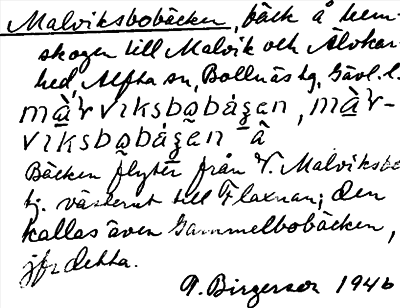 Malviksbobäcken, bäck å hem-
skogen till Malvik och Älvkar-
hed, Alfta sn, Bollnäs tg, Gävl. l.
mà̱ʹrviksbo̱bázan, mà̱ʹr-
viksbo̱bázan â
Bäcken flyter från V. Malviksbo-
tj. västerut till Flaxnan; den
kallas även Gammelbobäcken,
jfr detta.
P. Birgerson 1946